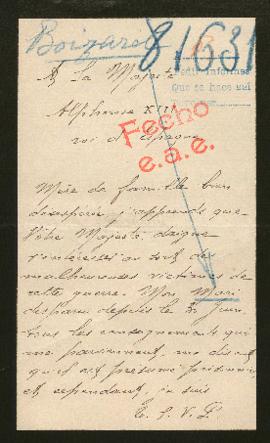 Bouzarel
81631
A Sa Majesté
Pedir informes
que se hace sul
Alphonse XIII
roi d'Espagne
Fecho
e.a.e.
Mère de famille bien
désespérée j'apprends que
Votre Majesté daigne
s'intéresser au sort de
malheureuses victimes de
cette guerre. Mon Mari
disparu depuis le 5 Juin
tous les renseignements qui
me parviennent, me disent
qu'il est présumé prisonnier
et cependant, je suis
T. S. V. P.